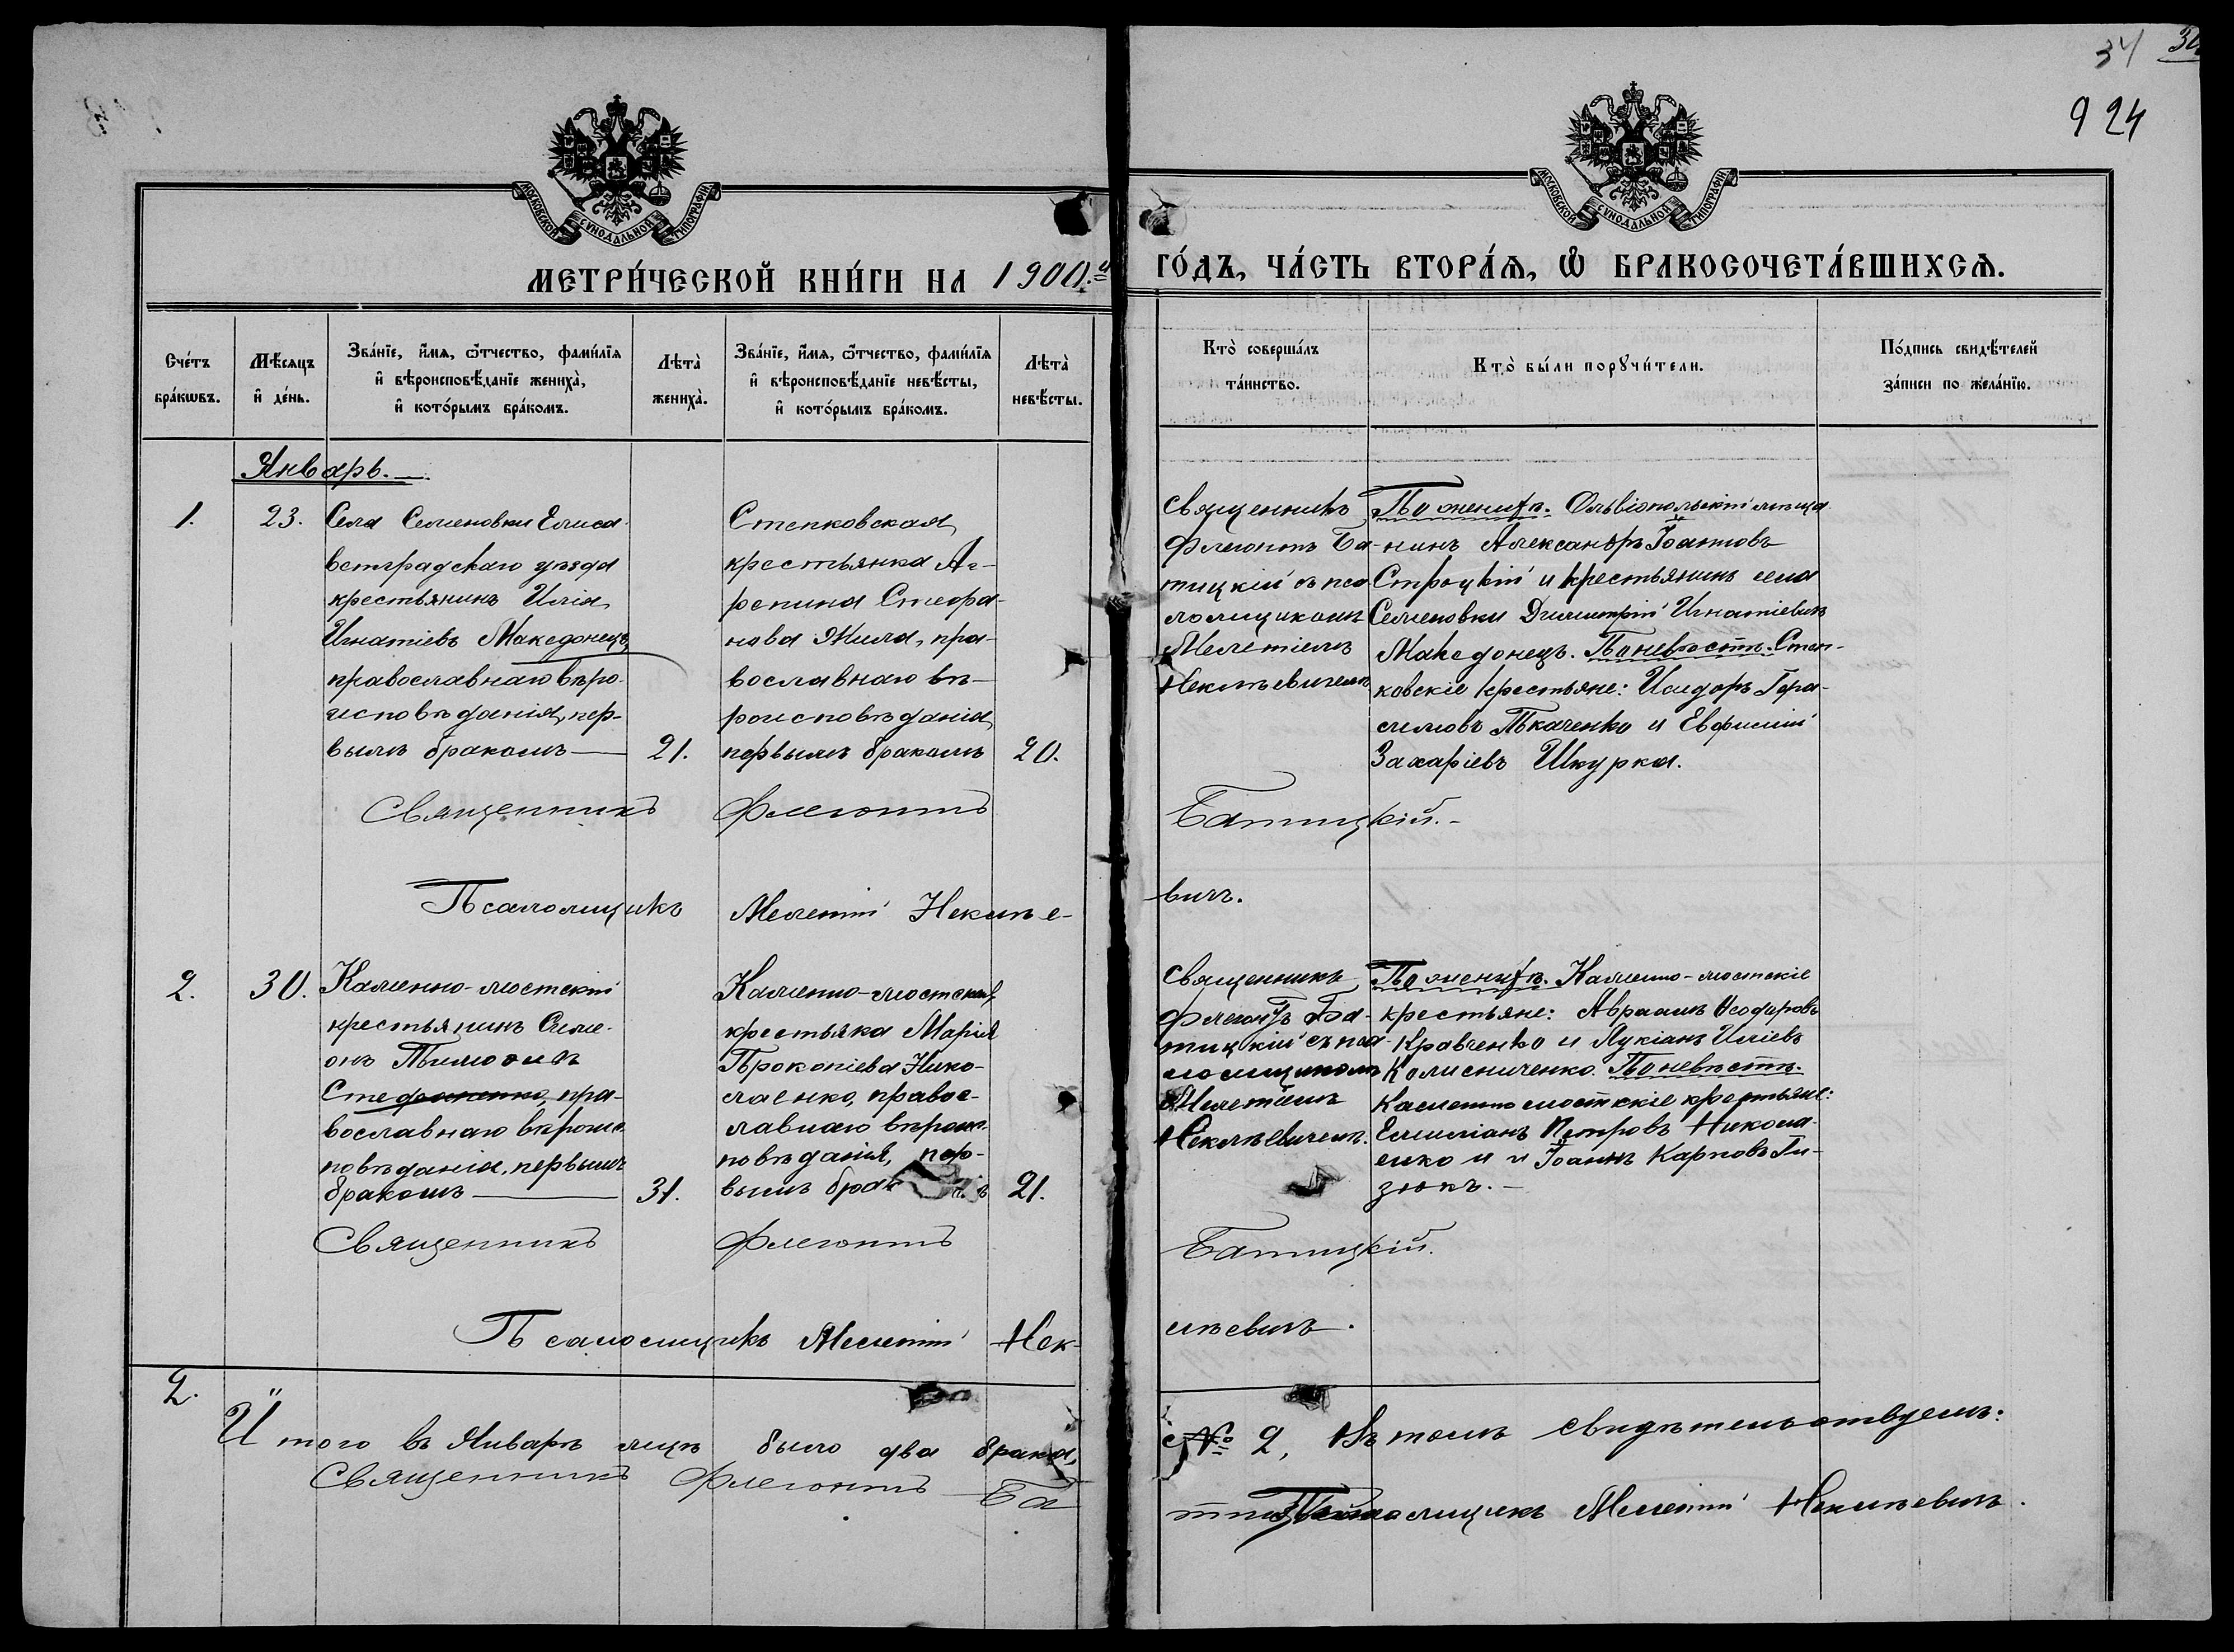 34 30
924
МОСКОВСКОЙ СУНОДАЛЬНОЙ ТИПОГРАФІИ
МОСКОВСКОЙ СУНОДАЛЬНОЙ ТИПОГРАФІИ
МЕТРИ́ЧЕСКОЙ КНИ́ГИ НА 1900.й ГО́ДЪ, ЧА́СТЬ ВТОРА́Ѧ, Ѡ҆ БРАКОСОЧЕТА́ВШИХСѦ.
Сче́тъ
бра́кѡвъ.
Мѣ́сяцъ
и҆ де́нь.
Зва́нїе, и҆́мѧ, ѻ҆́тчество, фами́лїѧ
и҆ вѣроисповѣ́данїе жениха̀,
и҆ кото́рымъ бра́комъ.
Лѣта̀
жениха̀.
Зва́нїе, и҆́мѧ, ѻ҆́тчество, фами́лїѧ
и҆ вѣроисповѣ́данїе невѣ́сты,
и҆ кото́рымъ бра́комъ.
Лѣта̀
невѣ́сты.
Кто̀ соверша́лъ
та́инство.
Кто̀ бы́ли порꙋчи́тели.
По́дпись свидѣ́телей
за́писи по жела́нїю.
Январь.
1.
23.
Села Семеновки Елиса-
ветградскаго уѣзда
крестьянинъ Илія
Игнатіевъ Македонецъ,
православнаго вѣро-
исповѣданія, пер-
вымъ бракомъ
21.
Степковская
крестьянка Аг-
репина Стефа-
нова Жила, пра-
вославнаго вѣ-
роисповѣданія,
первымъ бракомъ
20.
Священникъ
Флегонтъ Ба-
тицкій съ пса-
ломщикомъ
Мелетіемъ
Некмѣевичемъ
По женихѣ. Ольвіопольскій мѣща-
нинъ Александръ Іоанновъ
Строцкій и крестьянинъ села
Семеновки Димитрій Игнатіевичъ
Македонецъ. По невѣстѣ. Степ-
ковскіе крестьяне: Исидоръ Гера-
симовъ Ткаченко и Евфимій
Захаріевъ Шкурка.
Священникъ Флегонтъ Батицкій.
Псаломщикъ Мелетій Некмѣе-
вичъ.
2.
30.
Каменно-мостскій
крестьянинъ Симе-
онъ Тимоѳеевъ
Стефаненко, пра-
вославнаго вѣроис-
повѣданія, первымъ
бракомъ
31.
Каменно-мостская
крестьянка Марія
Прокопіева Нико-
лаенко, правос-
лавнаго вѣроис-
повѣданія, пер-
вымъ брак
21.
Священникъ
Флегонтъ Ба-
тицкій съ пса-
ломщикомъ
Мелетіемъ
Некмѣевичемъ.
По женихѣ. Каменно-мостскіе
крестьяне: Авраамъ Ѳеодоровъ
Кравченко и Лукіанъ Иліевъ
Колисниченко. По невѣстѣ.
Каменно мостскіе крестьяне:
Емиліанъ Петровъ Никола-
енко и и Іоаннъ Карповъ Ги-
зюкъ.
Священникъ Флегонтъ Батицкій.
Псаломщикъ Мелетій Нек-
мѣевичъ.
2.
Итого въ Январѣ мцѣ было два брака,
№ 2, Въ томъ свидѣтельствуемъ:
Священникъ Флегонтъ Ба
Псаломщикъ Мелетій Некмѣевичъ.